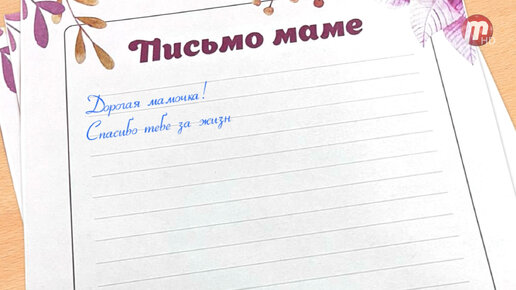 Письмо маме
Дорогая мамочка!
Спасибо тебе за жизн